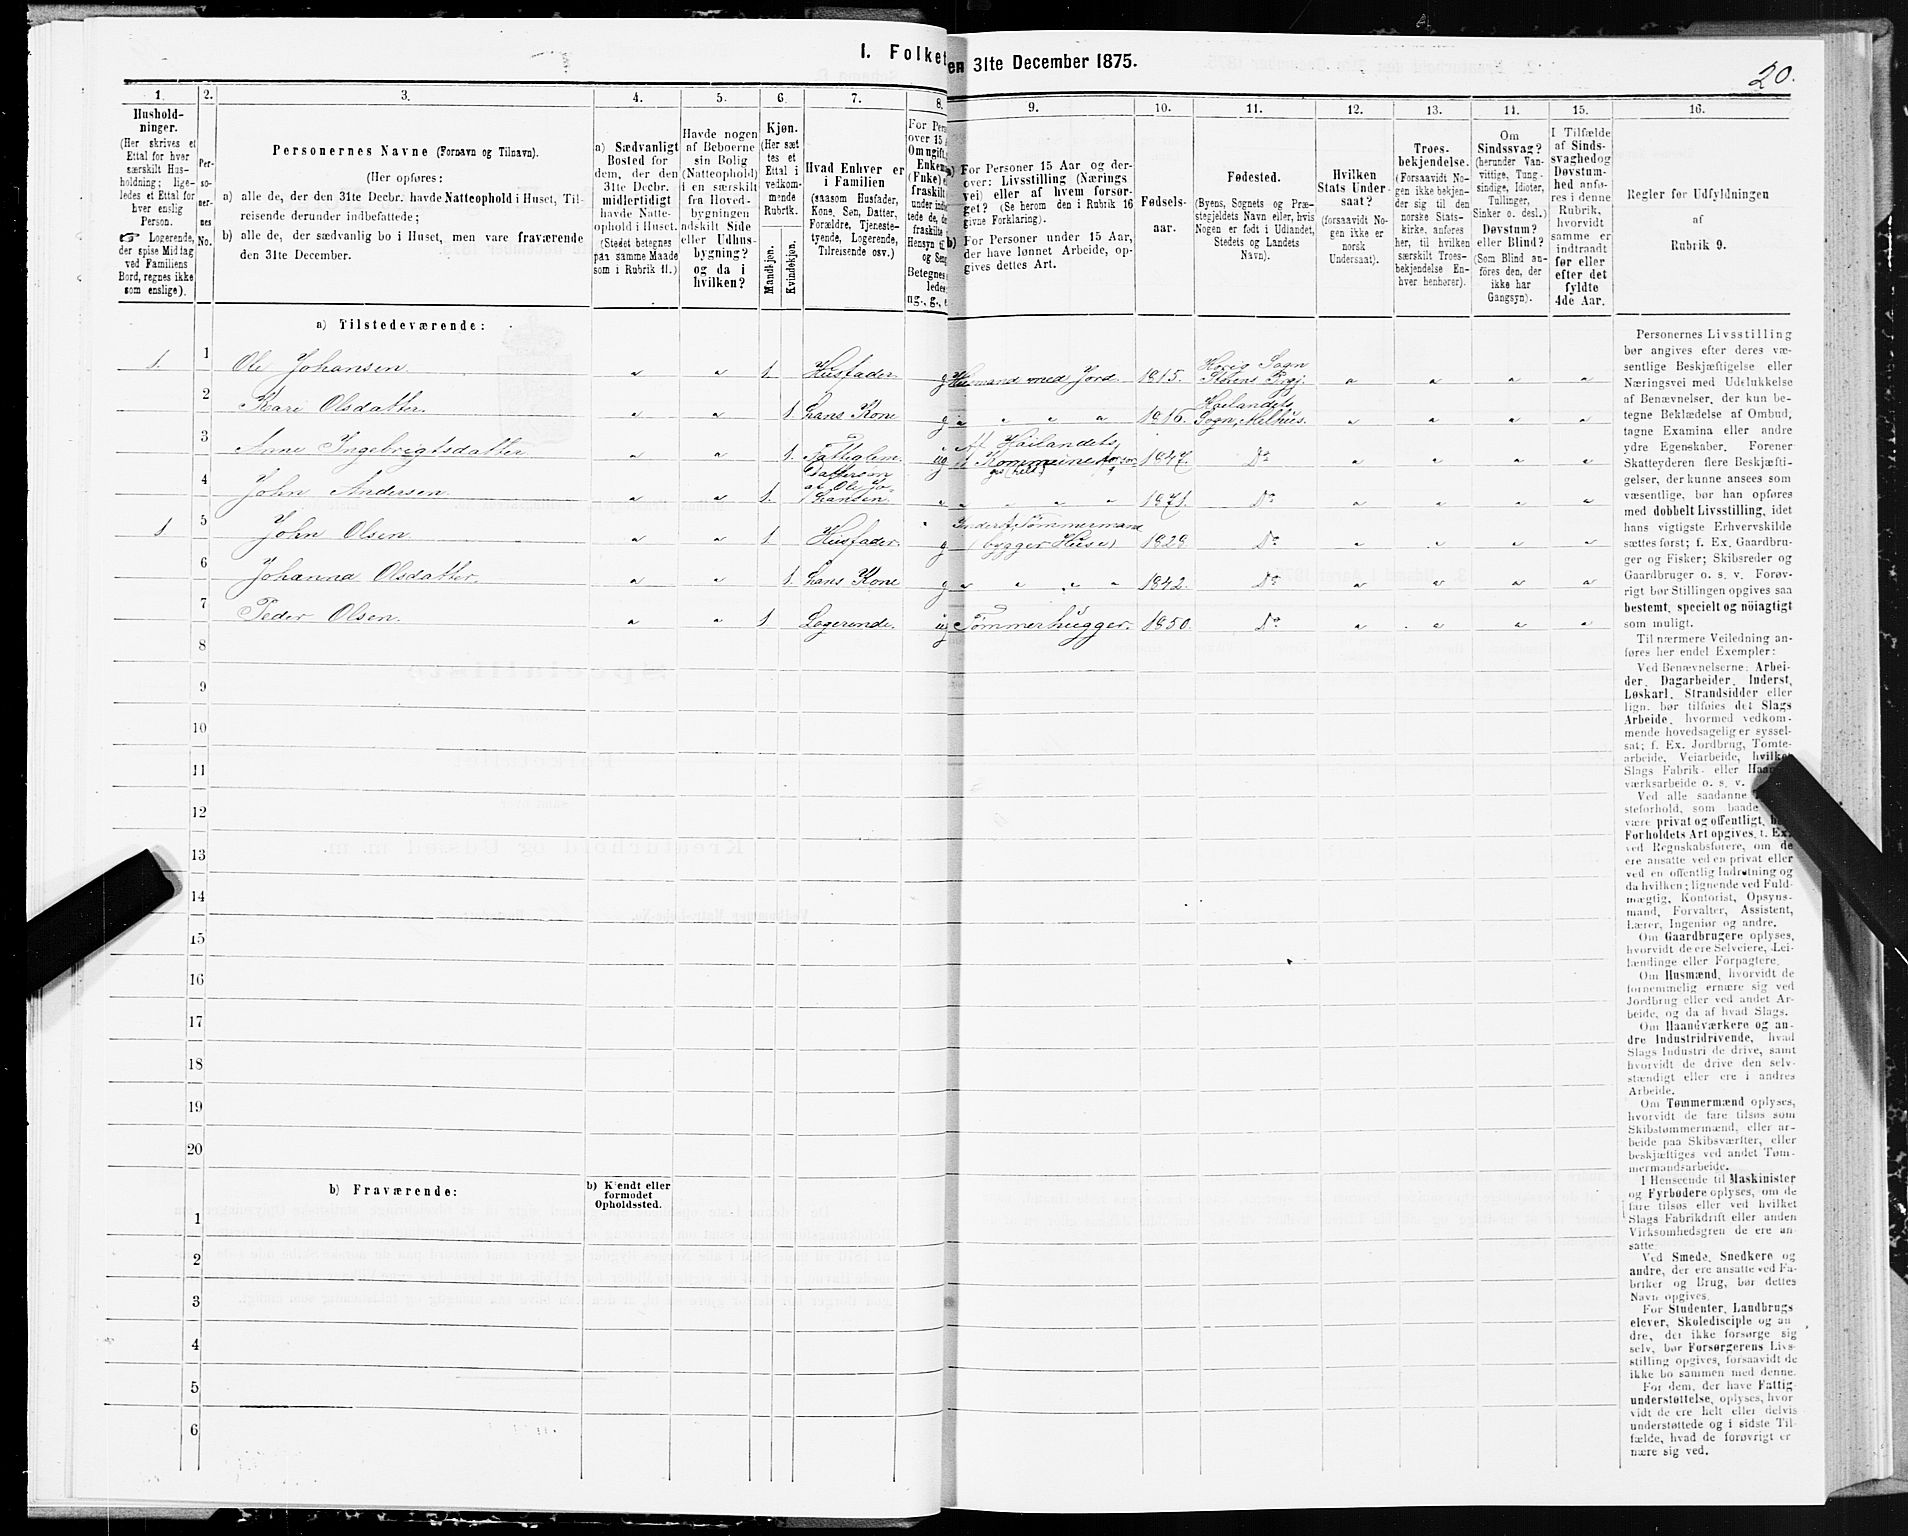 I. Folket
en 31te December 1875.
20.
1.
2.
3.
4.
5.
6.
7.
8.
9.
10.
11.
12.
13.
14.
15.
16.
Hushold-
ninger.
(Her skrives et
Ettal for hver
særskilt Hus-
holdning; lige-
ledes et Ettal for
hver enslig
Person.
☞ Logerende,
der spise Middag
ved Familiens
Bord, regnes ikke
som enslige).
Per-
so-
ner-
nes
No.
Personernes Navne (Fornavn og Tilnavn).
(Her opføres:
a) alle de, der den 31te Decbr. havde Natteophold i Huset, Til-
reisende derunder indbefattede;
b) alle de, der sædvanlig bo i Huset, men vare fraværende
den 31te December.
a) Sædvanligt
Bosted for
dem, der den
31te Decbr.
midlertidigt
havde Natte-
ophold i Huset.
(Stedet betegnes
paa samme Maade
som i Rubrik 11.)
Havde nogen
af Beboerne
sin Bolig
(Natteophold)
i en særskilt
fra Hoved-
bygningen
adskilt Side
eller Udhus-
bygning?
og da i
hvilken?
Kjøn.
(Her sæt
tes et
Ettal i
vedkom-
mende
Rubrik.
Mandkjøn.
Kvindekjøn.
Hvad Enhver er
i Familien
(saasom Husfader,
Kone, Søn, Datter,
Forældre, Tjeneste-
tyende, Logerende,
Tilreisende osv.)
For Pers
over 15 A
Om ugift,
Enkem
(Enke) e
fraskilt
under inde
tede de, de
fraskilte
Hensyn til
og Seng
Betegnes
ledes
ug., g., e
a) For Personer 15 Aar og der-
over: Livsstilling (Nærings
vei) eller af hvem forsør-
get? (Se herom den i Rubrik 16
givne Forklaring).
b) For Personer under 15 Aar,
der have lønnet Arbeide, op-
gives dettes Art.
Fødsels-
aar.
Fødested.
(Byens, Sognets og Præ-
stegjeldets Navn eller, hvis
Nogen er født i Udlandet,
Stedets og Landets
Navn).
Hvilken
Stats Under-
saat?
(forsaavidt No-
gen ikke er
norsk
Undersaat).
Troes-
bekjendelse.
(Forsaavidt No-
gen ikke bekjen-
der sig til den
norske Stats-
kirke, anføres
her, til hvilken
særskilt Troes-
bekjendelse En-
hver henhører).
Om
Sindssvag?
(herunder Van-
vittige, Tung-
sindige, Idioter,
Tullinger,
Sinker o. desl.)
Døvstum?
eller Blind?
(Som Blind an-
føres den, der
ikke har
Gangsyn).
I Tilfælde
af Sinds-
svaghed og
Døvstum-
hed anfø-
res i denne
Rubrik,
hvorvidt
samme er
indtraadt
før eller
efter det
fyldte
4de Aar.
Regler for Udfyldningen
af
Rubrik 9.
a) Tilstedeværende:
1. 1 Ole Johansen " " 1. Husfader g Husmand med Jord 1815. Horig Sogn Størens Prgj. " " " "
2 Kari Olsdatter. " " 1. hans Kone g " " " " 1816. Høilandets Sogn, Melhus. " " " "
3 Anne Ingebrigtsdatter " " 1. Fattiglem ug af Høilandets Kommune 1847. Do " " " "
4 John Andersen " " 1. Dattersøn af Ole Jo- hansen " " " " " 1871. Do " " " "
1 5 John Olsen " " 1 Husfader. g Inderst, Tømmermand (bygger Huse) 1829 Do " " " "
6 Johanna Olsdatter. " " 1. hans Kone g " " " " 1842. Do " " " "
7 Peder Olsen. " " 1 Logerende. ug Tømmerhugger. 1850. Do " " " "
8
9
10
11
12
13
14
15
16
17
18
19
20
b) Fraværende:
b) Kjendt eller
formodet
Opholdssted.
1
2
3
4
5
6
Personernes Livsstilling
bør angives efter deres væ-
sentlige Beskjæftigelse eller
Næringsvei med Udelukkelse
af Benævnelser, der kun be-
tegne Beklædelse af Ombud,
tagne Examina eller andre
ydre Egenskaber. Forener
Skatteyderen flere Beskjæfti-
gelser, der kunne ansees som
væsentlige, bør han opføres
med dobbelt Livsstilling, idet
hans vigtigste Erhvervskilde
sættes først; f. Ex. Gaardbru-
ger og Fisker; Skibsreder og
Gaardbruger o. s. v. Forøv-
rigt bør Stillingen opgives saa
bestemt, specielt og nöiagtigt
som muligt.
Til nærmere Veiledning an-
føres her endel Exempler:
Ved Benævnelserne: Arbei-
der, Dagarbeider, Inderst,
Løskarl, Strandsidder eller
lign. bør tilføies det Slags
Arbeide, hvormed vedkom-
mende hovedsagelig er syssel-
sat; f. Ex. Jordbrug, Tomte-
arbeide, Veiarbeide, hvilket
Slags Fabrik- eller Haand-
værksarbeide o. s. v.
Ved alle saadanne
steforhold, som baade
være privat og offentligt, bør
Forholdets Art opgives, t. Ex.
ved Regnskabsførere, om de
ere ansatte ved en privat eller
ved en offentlig Indretning og
da hvilken; lignende ved Fuld-
mægtig, Kontorist, Opsyns-
mand, Forvalter, Assistent,
Lærer, Ingeniør og andre.
Om Gaardbrugere oplyses,
hvorvidt de ere Selveiere, Lei-
lændinge eller Forpagtere.
Om Husmænd, hvorvidt de
fornemmelig ernære sig ved
Jordbrug eller ved andet Ar-
beide, og da af hvad Slags.
Om Haandværkere og an-
dre Industridrivende, hvad
Slags Industri de drive, samt
hvorvidt de drive den selv-
stændigt eller ere i andres
Arbeide.
Om Tømmermænd oplyses,
hvorvidt de fare tilsøs som
Skibstømmermænd, eller ar-
beide paa Skibsværfter, eller
beskjæftiges ved andet Tøm-
mermandsarbeide.
I Henseende til Maskinister
og Fyrbødere oplyses, om de
fare tilsøs eller ved hvilket
Slags Fabrikdrift eller anden
Virksomhedsgren de ere an-
satte
Ved Smede, Snedkere og
andre, der ere ansatte ved Fa-
briker og Brug, bør dettes
Navn opgives.
For Studenter, Landbrugs
elever, Skoledisciple og an
dre, der ikke forsørge sig
selv, bør Forsørgerens Livs-
stilling opgives, forsaavidt de
ikke bo sammen med denne.
For dem, der have Fattig-
understøttelse, oplyses, hvor-
vidt de ere helt eller delvis
understøttede og i sidste Til-
fælde, hvad de forøvrigt er
nære sig ved.